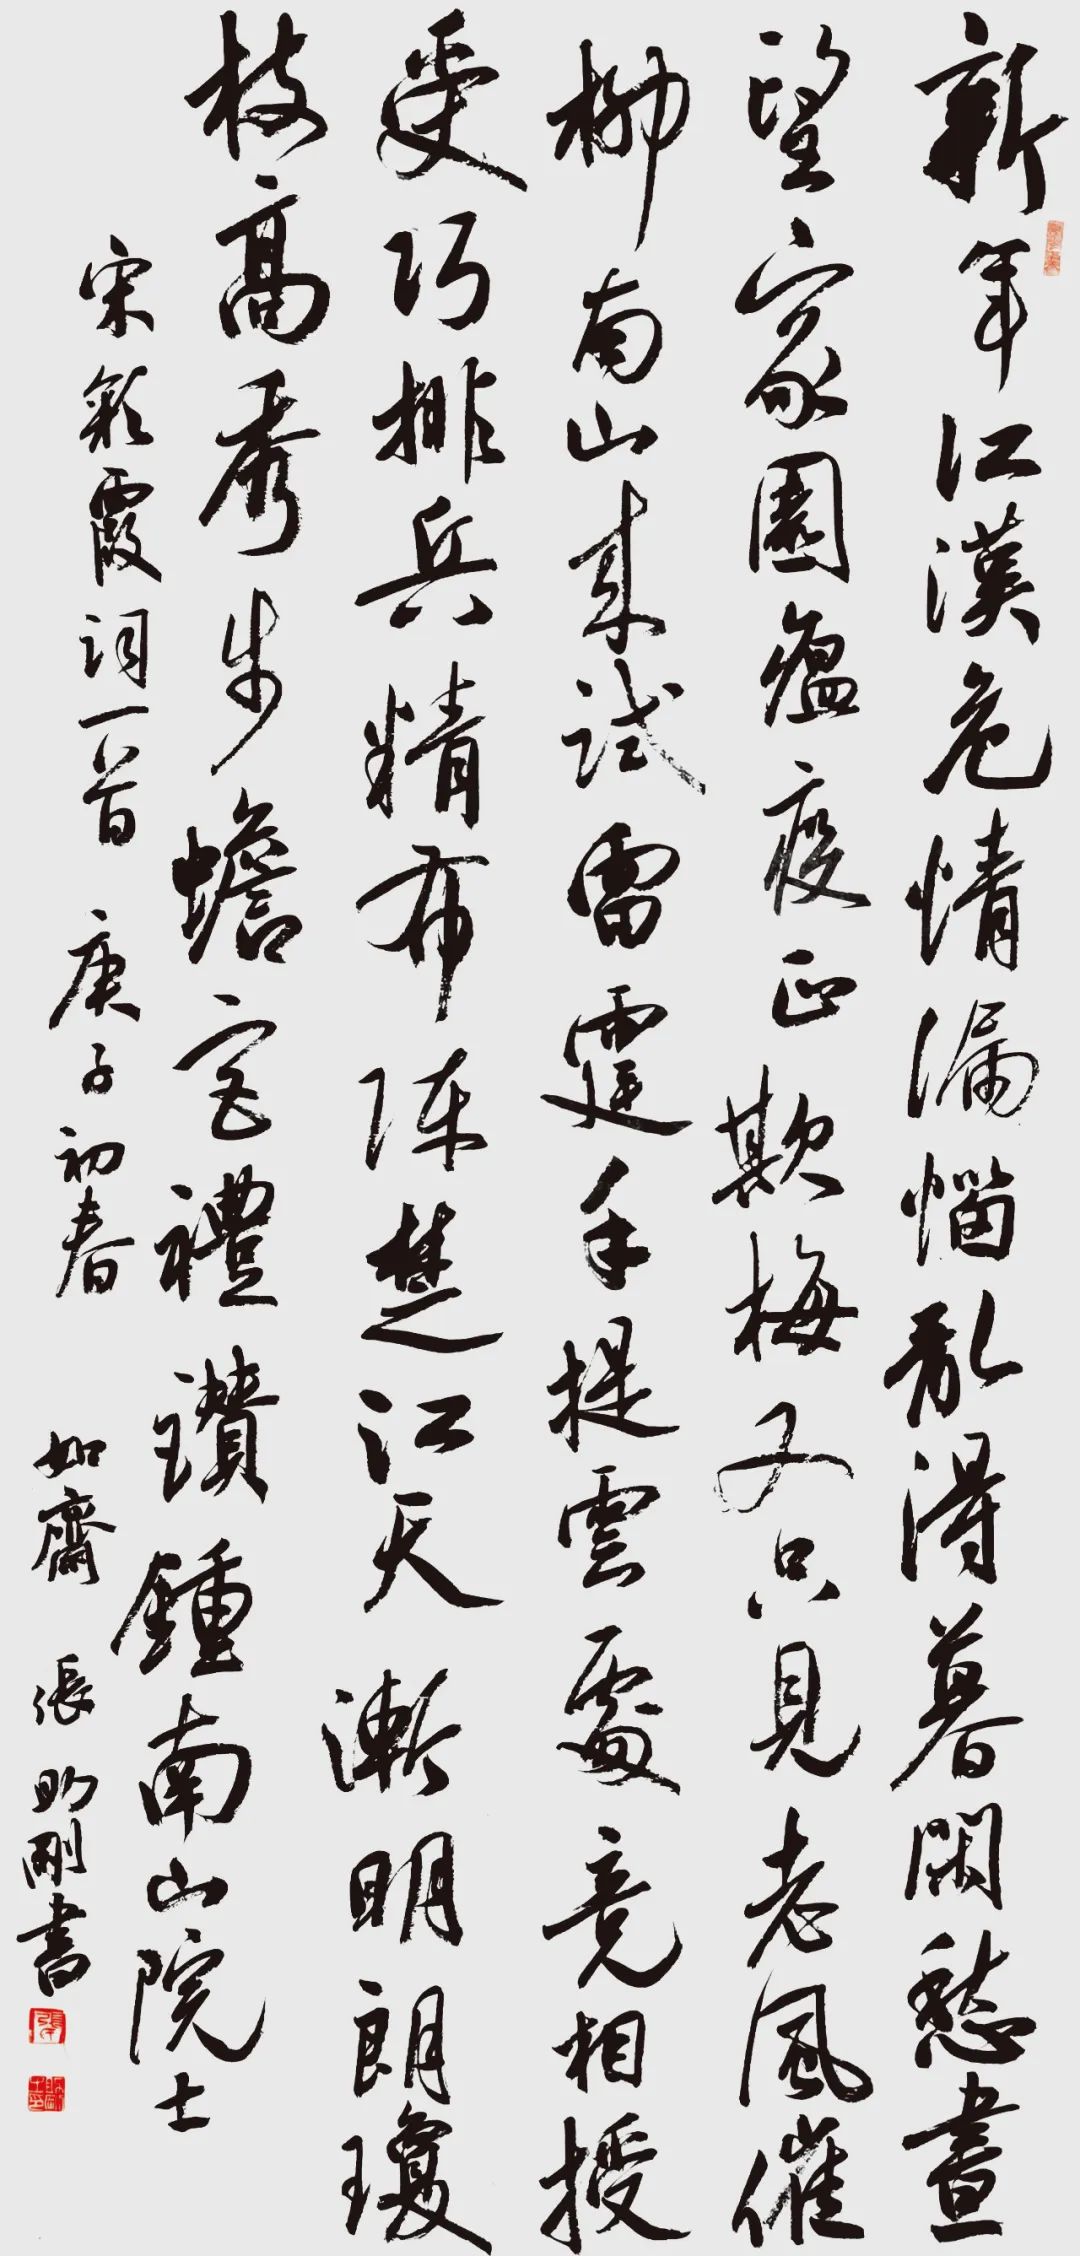 新年江漢危情漏惱亂得暮閑愁晝
望家園瘟疫正欺梅又只見老風催
柳南山來試雷霆手提雲處竟相授
受巧排兵精布陣楚江天漸明朗瓊
枝高秀步蟾宮禮讚鍾南山院士
宋彩霞詞一首 庚子初春 如齋 張助剛書